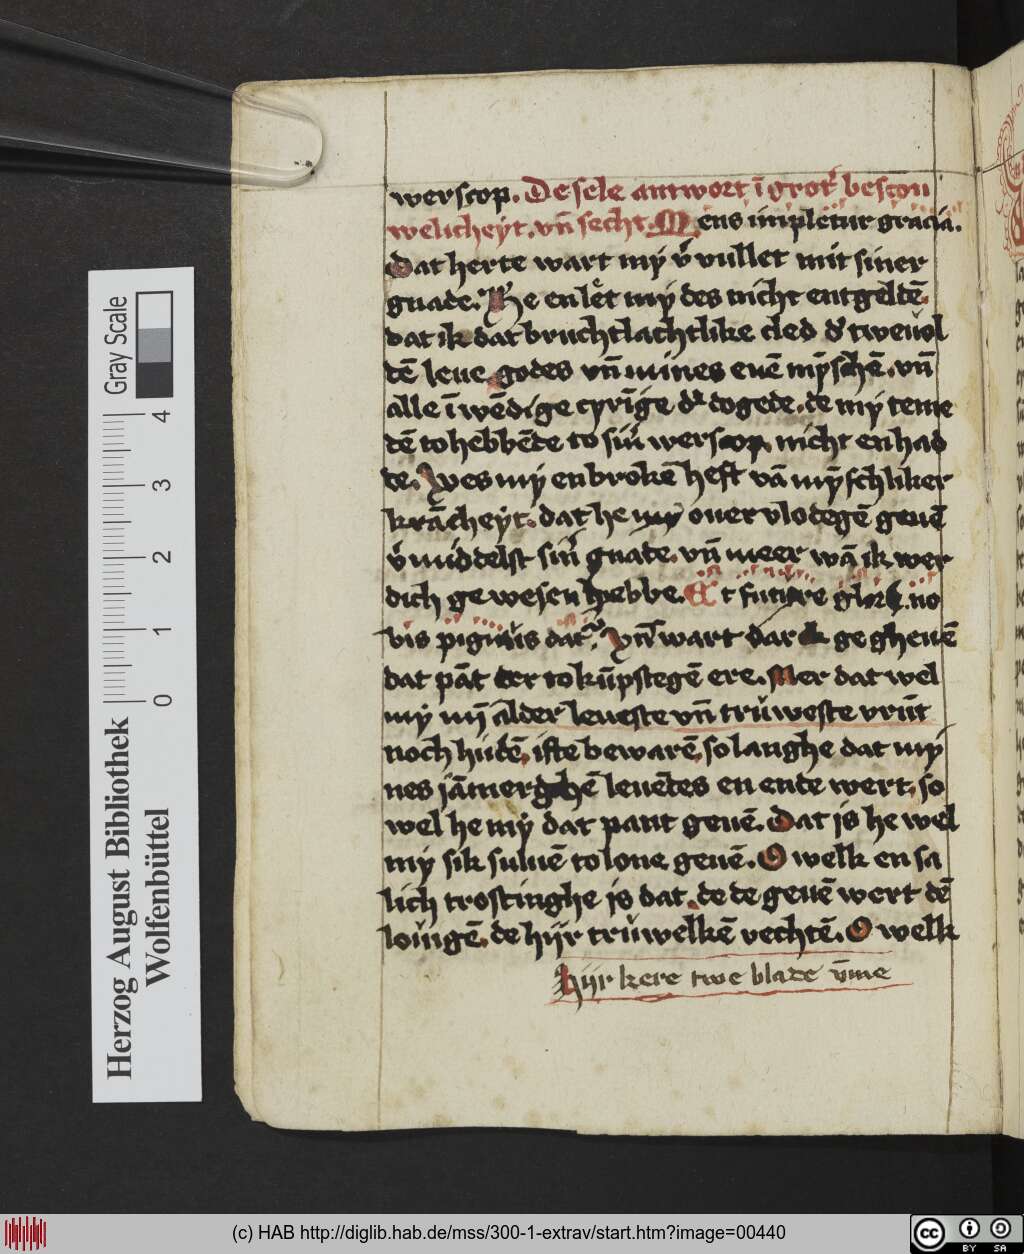 werscop. De sele antwort ī grot' bescou
welicheyt. vn̄ secht. Mens impletur gracia.
Dat herte wart mÿ v' vullet mit siner
gnade. He en let mÿ des nicht entgeldē.
dat ik dat bruchtlachtlike cled d' twevol
dē leue godes vn̄ mines euē mȳschē. vn̄
alle ī wēdige cyrīge d' dogede. de mÿ teme
dē to hebbēde to sin' werscop. nicht en had
de. Wes mÿ enbrokē heft vā mȳschliker
krācheyt. dat he mÿ ouer vlodegē geuē
v' middelst sin' gnade. vn̄ meer wā ik wer
dich gewesen hebbe. Et future glorie. no
bis pignus dat'. Vn̄ wart dar ik ge gheuē
dat pāt der to kūpstegē ere. Mer dat wel
mÿ mī alder leueste vn̄ trüweste vrūt
noch hüdē. ifte bewarē. so langhe dat mÿ
nes jāmer chē leuēdes en ende wert. so
wel he mÿ dat pant geuē. Dat is he wel
mÿ sik suluē to lone geuē. O welk en sa
lich trostinghe is dat. de de geuē wert dē
loüigē. de hÿr trüwelkē vechtē. O welk
hÿr kere twe blade v̄me
Gray Scale
4
3
2
1
0
Herzog August Bibliothek
Wolfenbüttel
(c) HAB http://diglib.hab.de/mss/300-1-extrav/start.htm?image=00440
cc BY SA